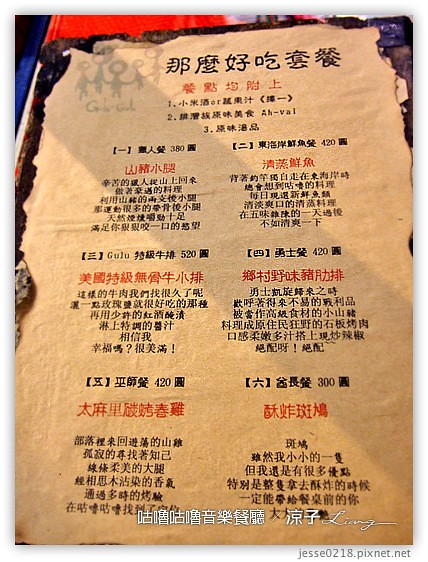 Gulu Gulu
那麼好吃套餐
餐點均附上
1.小米酒or蔬果汁《擇一》
2.排灣族原味美食 Ah-vai
3.原味湯品
【一】獵人餐 380圓
山豬小腿
辛苦的獵人從山上回來
做著豪邁的料理
利用山豬的兩支後小腿
那運動很多的帶骨後小腿
天然煙燻嚼勁十足
滿足你狠狠咬一口的慾望
【二】東海岸鮮魚餐 420圓
清蒸鮮魚
背著釣竿獨自走在東海岸時
總會想到咕嚕的料理
每日現選新鮮魚類
清淡爽口的清蒸料理
在五味雜陳的一天過後
不如清爽一下
【三】Gulu 特級牛排 520圓
美國特級無骨牛小排
這樣的牛肉我們找很久了呢
灑一點玫瑰鹽就很好吃的那種
再用少許的紅酒醃漬
淋上特調的醬汁
相信我
幸福嗎？很美滿！
【四】勇士餐 420圓
鄉村野味豬肋排
勇士凱旋歸來之時
歡呼著得來不易的戰利品
被當作高級食材的小山豬
料理成原住民狂野的石板烤肉
口感柔嫩多汁搭上現炒辣椒
絕配呀！絕配~
【五】巫師餐 420圓
太麻里碳烤春雞
部落裡來回遊蕩的山雞
孤寂的尋找著知己
線條柔美的大腿
經相思木沾染的香氣
通過多時的烤驗
在咕嚕咕嚕找到了
【六】酋長餐 300圓
酥炸斑鳩
斑鳩
雖然我小小的一隻
但我還是有很多優點
特別是整隻拿去酥炸的時候
一定能帶給餐桌前的你
大大
咕嚕咕嚕音樂餐廳 涼子 Liang
jesse0218.pixnet.net